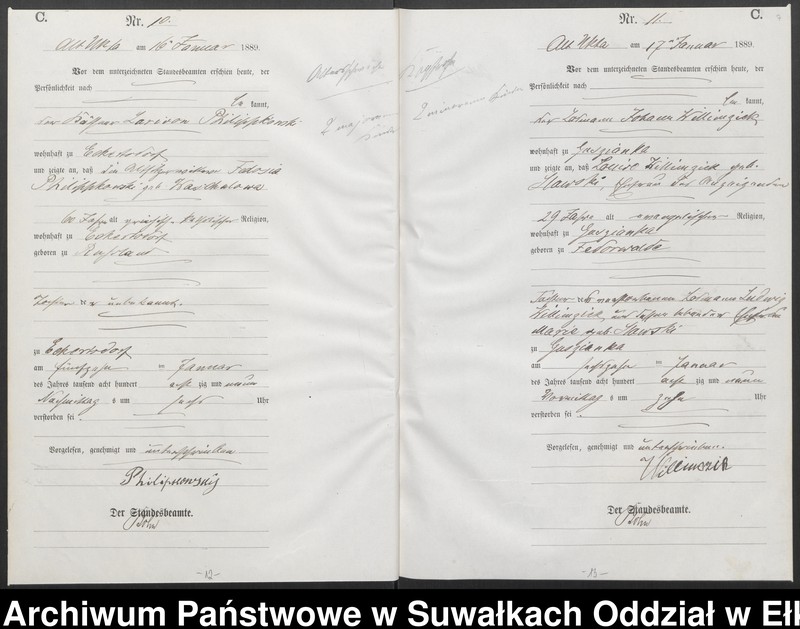 C.
Nr. 10.
Alt Ukta am 16 Januar 1889.
Vor dem unterzeichneten Standesbeamten erschien heute, der
Persönlichkeit nach
kannt,
der Philippkowski
wohnhaft zu Eckertsdorf
und zeigte an, daß die
Philippkowski geb.
60 Jahre alt Religion,
wohnhaft zu Eckertsdorf
geboren zu Russland
Tochter der unbekannt.
zu Eckertsdorf
am fünfzehn Januar
des Jahres tausend acht hundert acht zig und neun
Nachmittag s um sechs Uhr
verstorben sei.
Vorgelesen, genehmigt und unterschrieben
Philipkowskij
Der Standesbeamte.
Bohn
- 12 -
C.
Nr. 11.
Alt Ukta am 17 Januar 1889
Vor dem unterzeichneten Standesbeamten erschien heute, der
Persönlichkeit nach
kannt,
der Losmann Johann Willimzick
wohnhaft zu Guszianka
und zeigte an, daß Louise Willimzick geb.
Slawski, Ehefrau des Anzeigenden
29 Jahre alt evangelischer Religion,
wohnhaft zu Guszianka
geboren zu Fedorwalde
Tochter des verstorbenen Losmann Ludwig
Willimzick und dessen
Marie geb. Slawski
zu Guszianka
am sechszehn Januar
des Jahres tausend acht hundert acht zig und neun
Vormittag s um zehn Uhr
verstorben sei.
Vorgelesen, genehmigt und unterschrieben.
Willimczik
Der Standesbeamte.
Bohn
- 13 -
Archiwum Państwowe w Suwałkach Oddział w Ełk